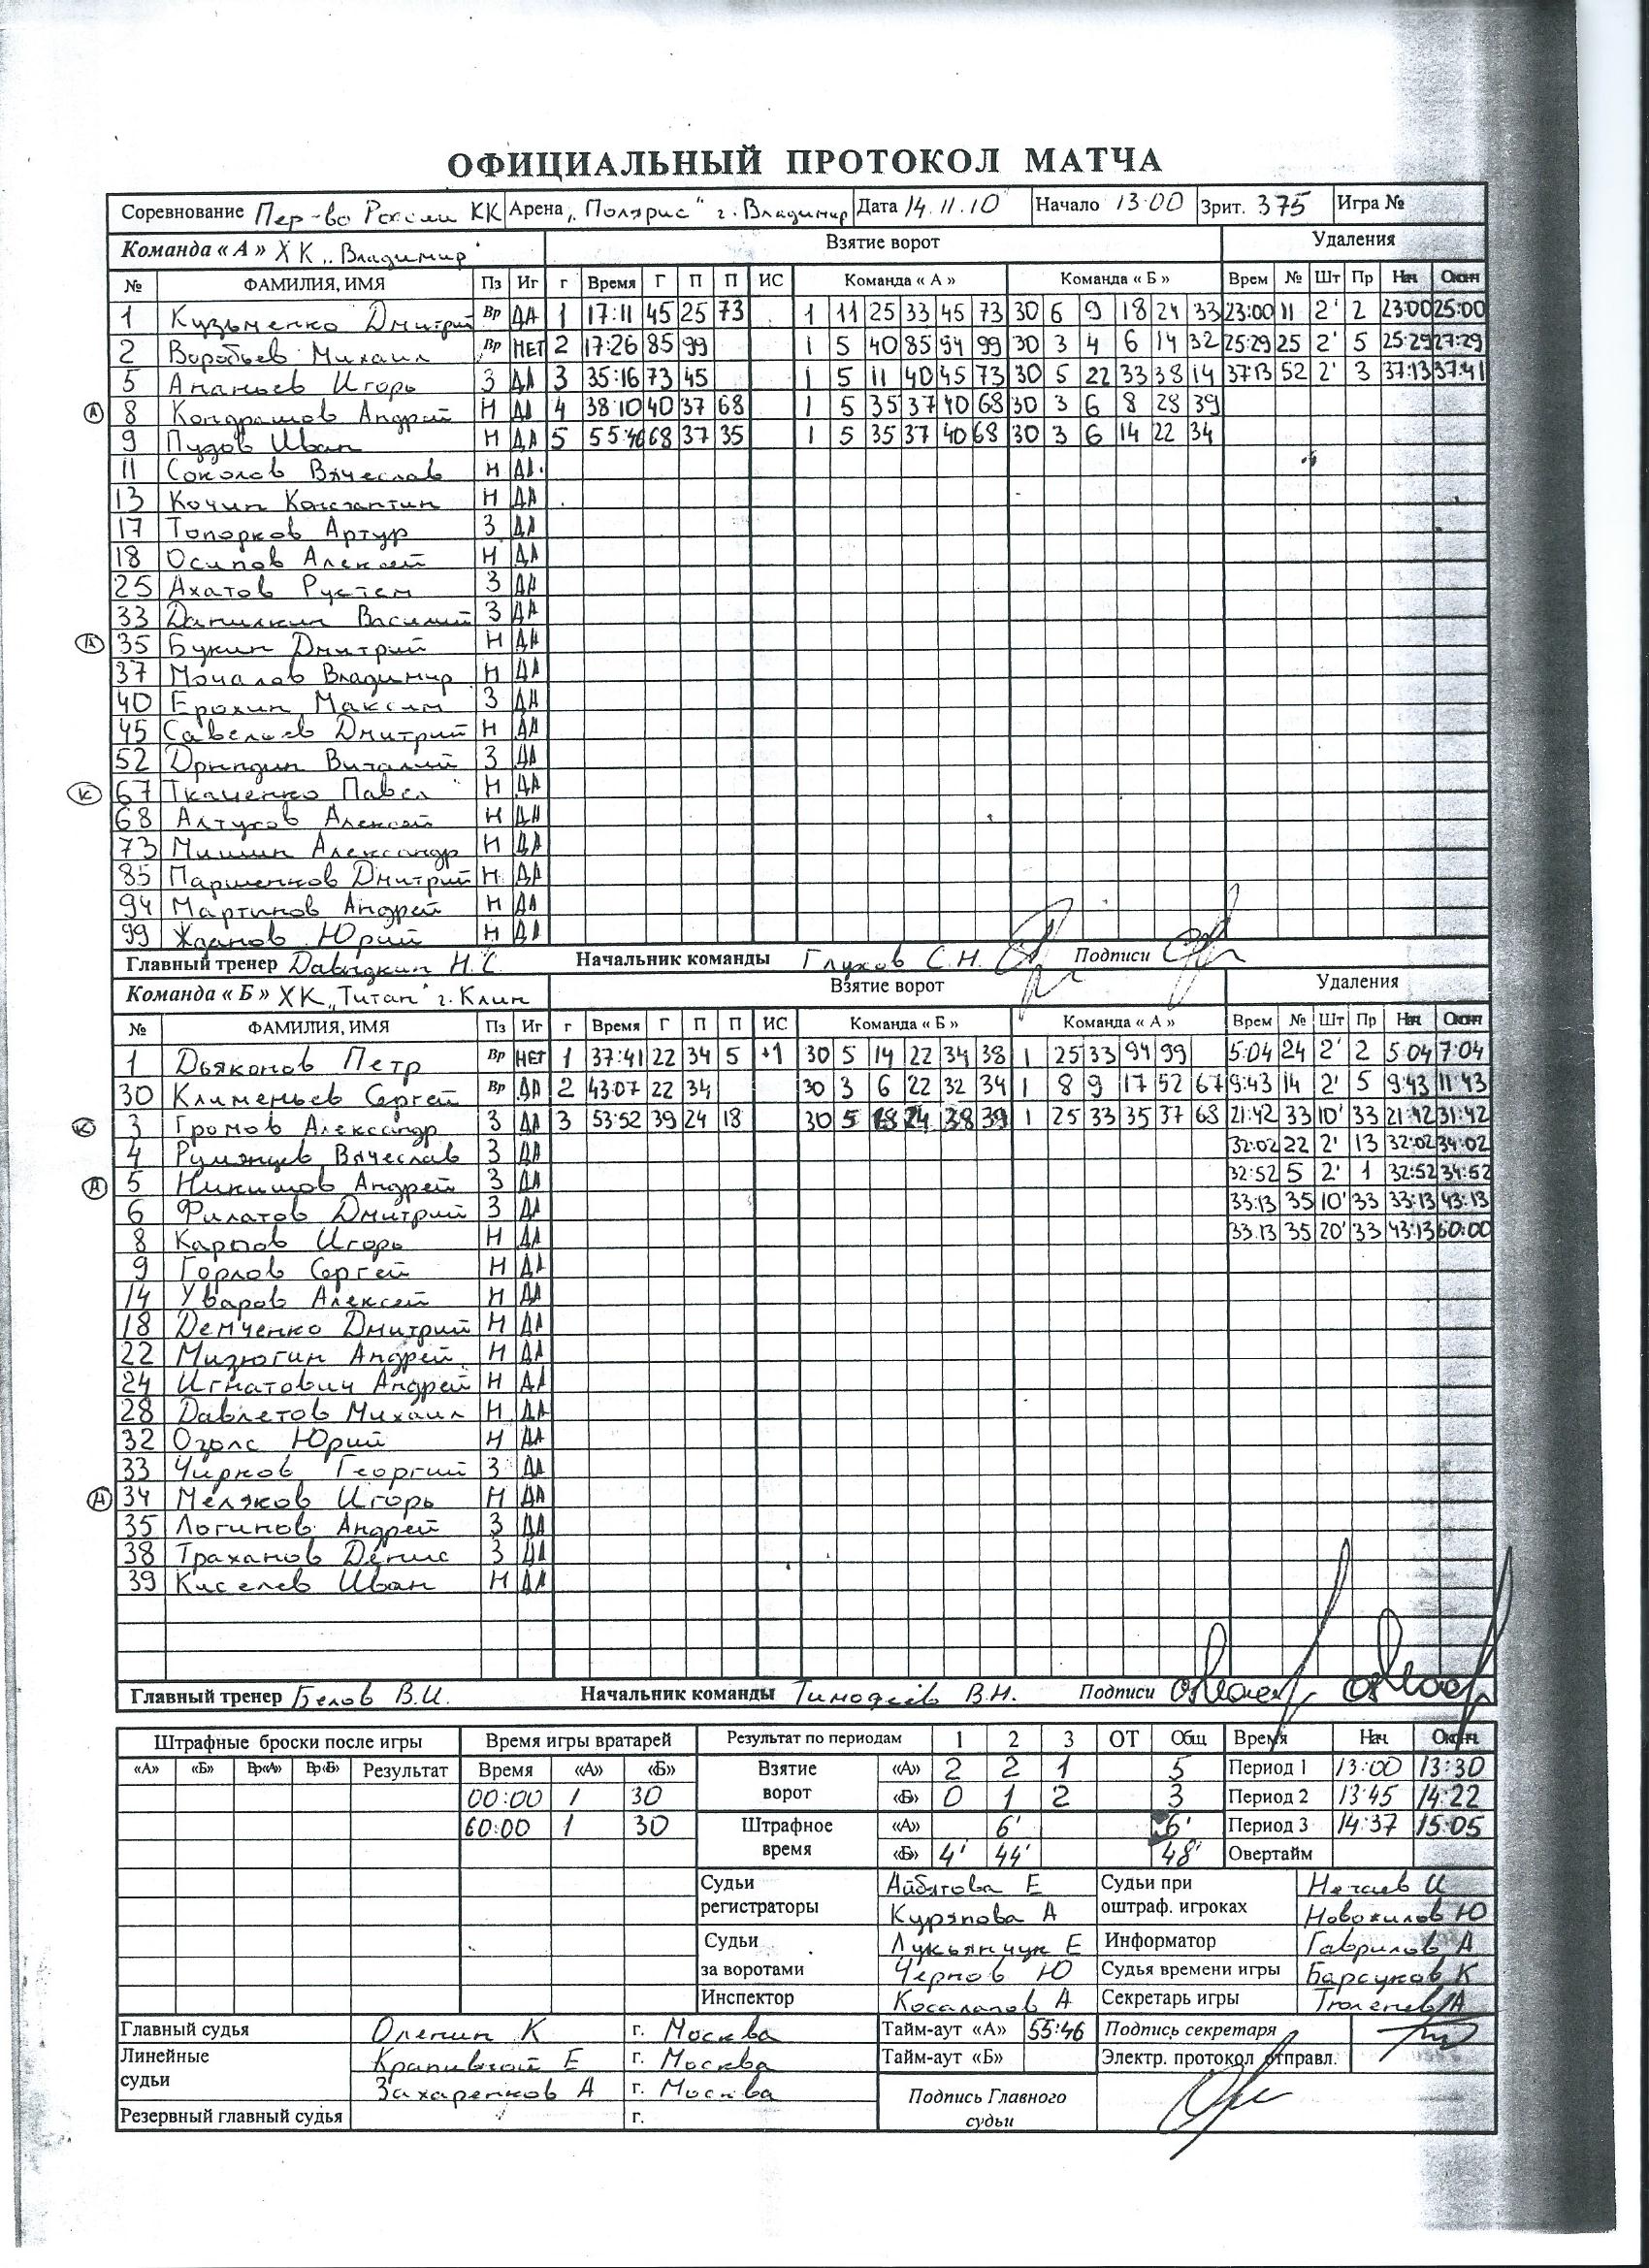 ОФИЦИАЛЬНЫЙ ПРОТОКОЛ МАТЧА
Соревнование Пер-во России КК Арена „Полярис“ г. Владимир Дата 14.11.10 Начало 13:00 Зрит. 375 Игра №
Команда « А » ХК „Владимир“ Взятие ворот Удаления
№ ФАМИЛИЯ, ИМЯ Пз Иг г Время Г П П ИС Команда « А » Команда « Б » Врем № Шт Пр Нач Оконч
1 Кузьменко Дмитрий Вр ДА 1 17:11 45 25 73 1 11 25 33 45 73 30 6 9 18 24 33 23:00 11 2' 2 23:00 25:00
2 Воробьев Михаил Вр НЕТ 2 17:26 85 99 1 5 40 85 94 99 30 3 4 6 14 32 25:29 25 2' 5 25:29 27:29
5 Ананьев Игорь З ДА 3 35:16 73 45 1 5 11 40 45 73 30 5 22 33 38 14 37:13 52 2' 3 37:13 37:41
А 8 Кондрашов Андрей Н ДА 4 38:10 40 37 68 1 5 35 37 40 68 30 3 6 8 28 39
9 Пузов Иван Н ДА 5 55:46 68 37 35 1 5 35 37 40 68 30 3 6 14 22 34
11 Соколов Вячеслав Н ДА
13 Кочин Константин Н ДА
17 Топорков Артур З ДА
18 Осипов Алексей Н ДА
25 Ахатов Рустем З ДА
33 Данилкин Василий З ДА
А 35 Букин Дмитрий Н ДА
37 Мочалов Владимир Н ДА
40 Ерохин Максим З ДА
45 Савельев Дмитрий Н ДА
52 Дрындин Виталий З ДА
К 67 Ткаченко Павел Н ДА
68 Алтухов Алексей Н ДА
73 Мишин Александр Н ДА
85 Паршенков Дмитрий Н ДА
94 Мартинов Андрей Н ДА
99 Жданов Юрий Н ДА
Главный тренер Давыдкин Н.С. Начальник команды Глухов С.Н. Подписи
Команда « Б » ХК „Титан“ г. Клин Взятие ворот Удаления
№ ФАМИЛИЯ, ИМЯ Пз Иг г Время Г П П ИС Команда « Б » Команда « А » Врем № Шт Пр Нач Оконч
1 Дьяконов Петр Вр НЕТ 1 37:41 22 34 5 +1 30 5 14 22 34 38 1 25 33 94 99 5:04 24 2' 2 5:04 7:04
30 Клименьев Сергей Вр ДА 2 43:07 22 34 30 3 6 22 32 34 1 8 9 17 52 67 9:43 14 2' 5 9:43 11:43
К 3 Громов Александр З ДА 3 53:52 39 24 18 30 5 18 24 38 39 1 25 33 35 37 68 21:42 33 10' 33 21:42 31:42
4 Румянцев Вячеслав З ДА 32:02 22 2' 13 32:02 34:02
А 5 Никишов Андрей З ДА 32:52 5 2' 1 32:52 34:52
6 Филатов Дмитрий З ДА 33:13 35 10' 33 33:13 43:13
8 Карпов Игорь Н ДА 33:13 35 20' 33 43:13 60:00
9 Горлов Сергей Н ДА
14 Уваров Алексей Н ДА
18 Демченко Дмитрий Н ДА
22 Мизюгин Андрей Н ДА
24 Игнатович Андрей Н ДА
28 Давлетов Михаил Н ДА
32 Озолс Юрий Н ДА
33 Чирков Георгий З ДА
А 34 Меляков Игорь Н ДА
35 Логинов Андрей З ДА
38 Траханов Денис З ДА
39 Киселев Иван Н ДА
Главный тренер Белов В.И. Начальник команды Тимофеев В.Н. Подписи
Штрафные броски после игры Время игры вратарей Результат по периодам 1 2 3 ОТ Общ Время Нач. Оконч.
«А» «Б» Вр«А» Вр«Б» Результат Время «А» «Б» Взятие ворот «А» 2 2 1 5 Период 1 13:00 13:30
00:00 1 30 «Б» 0 1 2 3 Период 2 13:45 14:22
60:00 1 30 Штрафное время «А» 6' 6' Период 3 14:37 15:05
«Б» 4' 44' 48' Овертайм
Судьи регистраторы Айбятова Е Судьи при оштраф. игроках Нечаев И
Куряпова А Новожилов Ю
Судьи за воротами Лукьянчук Е Информатор Гаврилов А
Чернов Ю Судья времени игры Барсуков К
Инспектор Косалапов А Секретарь игры Тюленев А
Главный судья Оленин К г. Москва Тайм-аут «А» 55:46 Подпись секретаря
Линейные судьи Крапивной Е г. Москва Тайм-аут «Б» Электр. протокол отправл.
Захаренков А г. Москва Подпись Главного судьи
Резервный главный судья г.